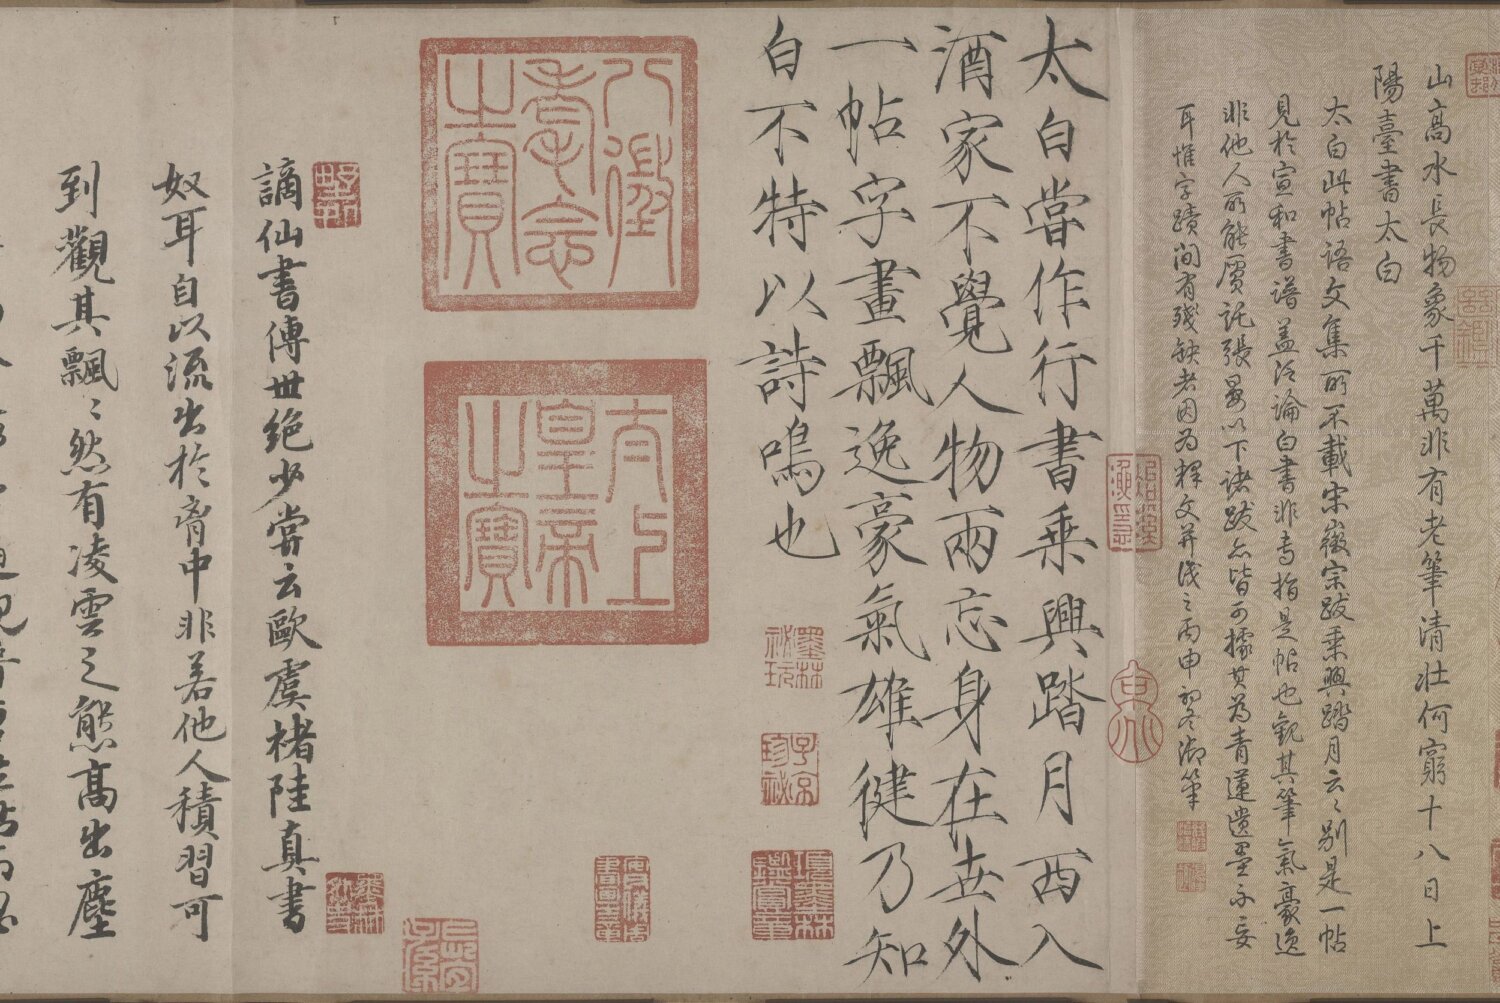 山高水長物象千萬非有老筆清壯何窮十八日上
陽臺書太白
太白此帖語文集所不載宋徽宗跋乘興踏月云〻別是一帖
見於宣和書譜蓋泛論白書非專指是帖也觀其筆氣豪逸
非他人所能贗託張晏以下諸跋亦皆可據其為青蓮遺墨不妄
耳惟字蹟間有殘缺者因為釋文并識之丙申初冬御筆
太白嘗作行書乘興踏月西入
酒家不覺人物兩忘身在世外
一帖字畫飄逸豪氣雄健乃知
白不特以詩鳴也
八徵耄念之寶
太上皇帝之寶
墨林祕玩
子京珍祕
項墨林鑑賞章
安儀周家珍
謫仙書傳世絕少嘗云歐虞褚陸真書
奴耳自以流出於胷中非若他人積習可
到觀其飄〻然有凌雲之態高出塵